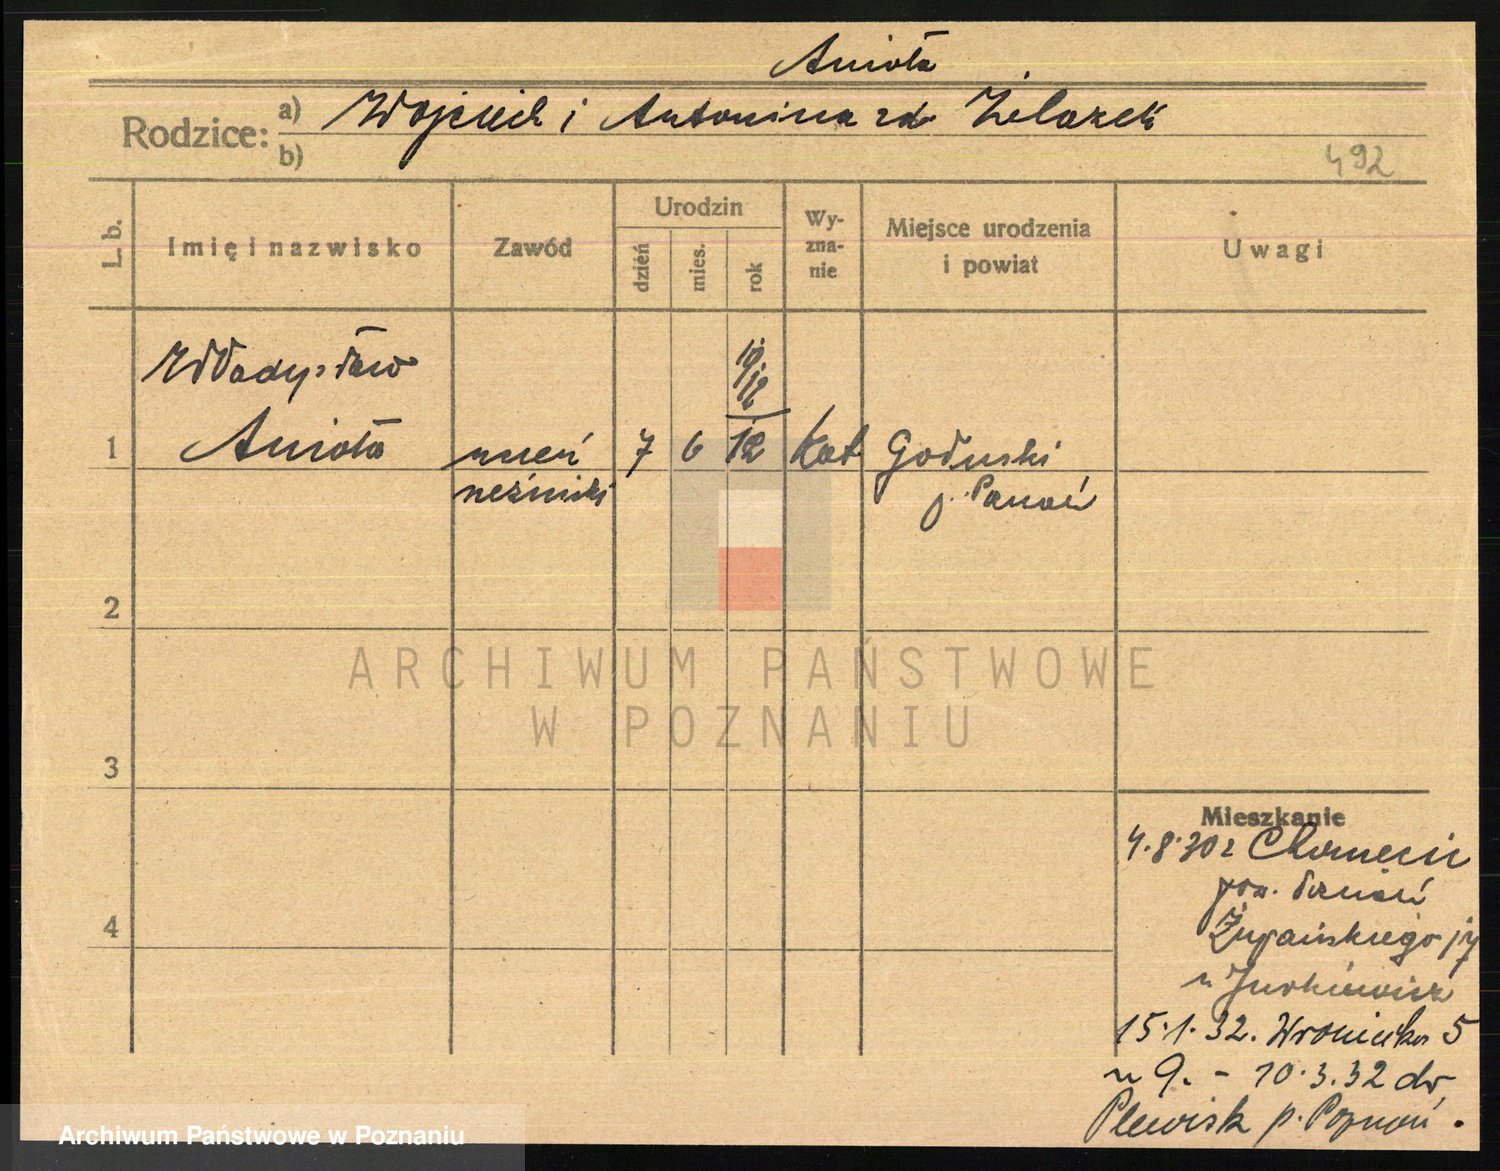 Anioła
Rodzice: a) Wojciech i Antonina zd. Żelazek
b)
492
L. b.
Imię i nazwisko
Zawód
Urodzin
dzień
mies.
rok
Wy-
zna-
nie
Miejsce urodzenia
i powiat
Uwagi
Władysław
19/12
1 Anioła uczeń 7 6 12 kat Goduski
rzeźnicki p. Poznań
2
3
4
ARCHIWUM PAŃSTWOWE
W POZNANIU
Mieszkanie
4.8.30 z
pow. Poznań
Żupańskiego 17
u Jurkiewicz
15.1.32. Wroniecka 5
u 9. - 10.3.32 do
Plewisk p. Poznań.
Archiwum Państwowe w Poznaniu